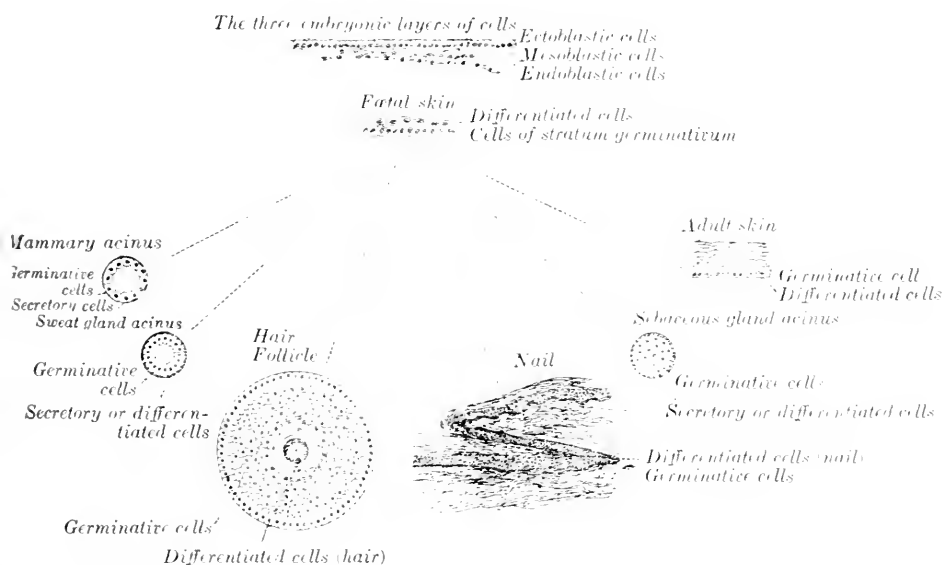 The three embryonic layers of cells
Ectoblastic cells
Mesoblastic cells
Endoblastic cells
Fœtal skin
Differentiated cells
Cells of stratum germinativum
Mammary acinus
Germinative
cells
Secretory cells
Sweat gland acinus
Germinative
cells
Secretory or differen-
tiated cells
Hair
Follicle
Germinative cells
Differentiated cells (hair)
Nail
Differentiated cells (nail)
Germinative cells
Adult skin
Germinative cell
Differentiated cells
Sebaceous gland acinus
Germinative cells
Secretory or differentiated cells